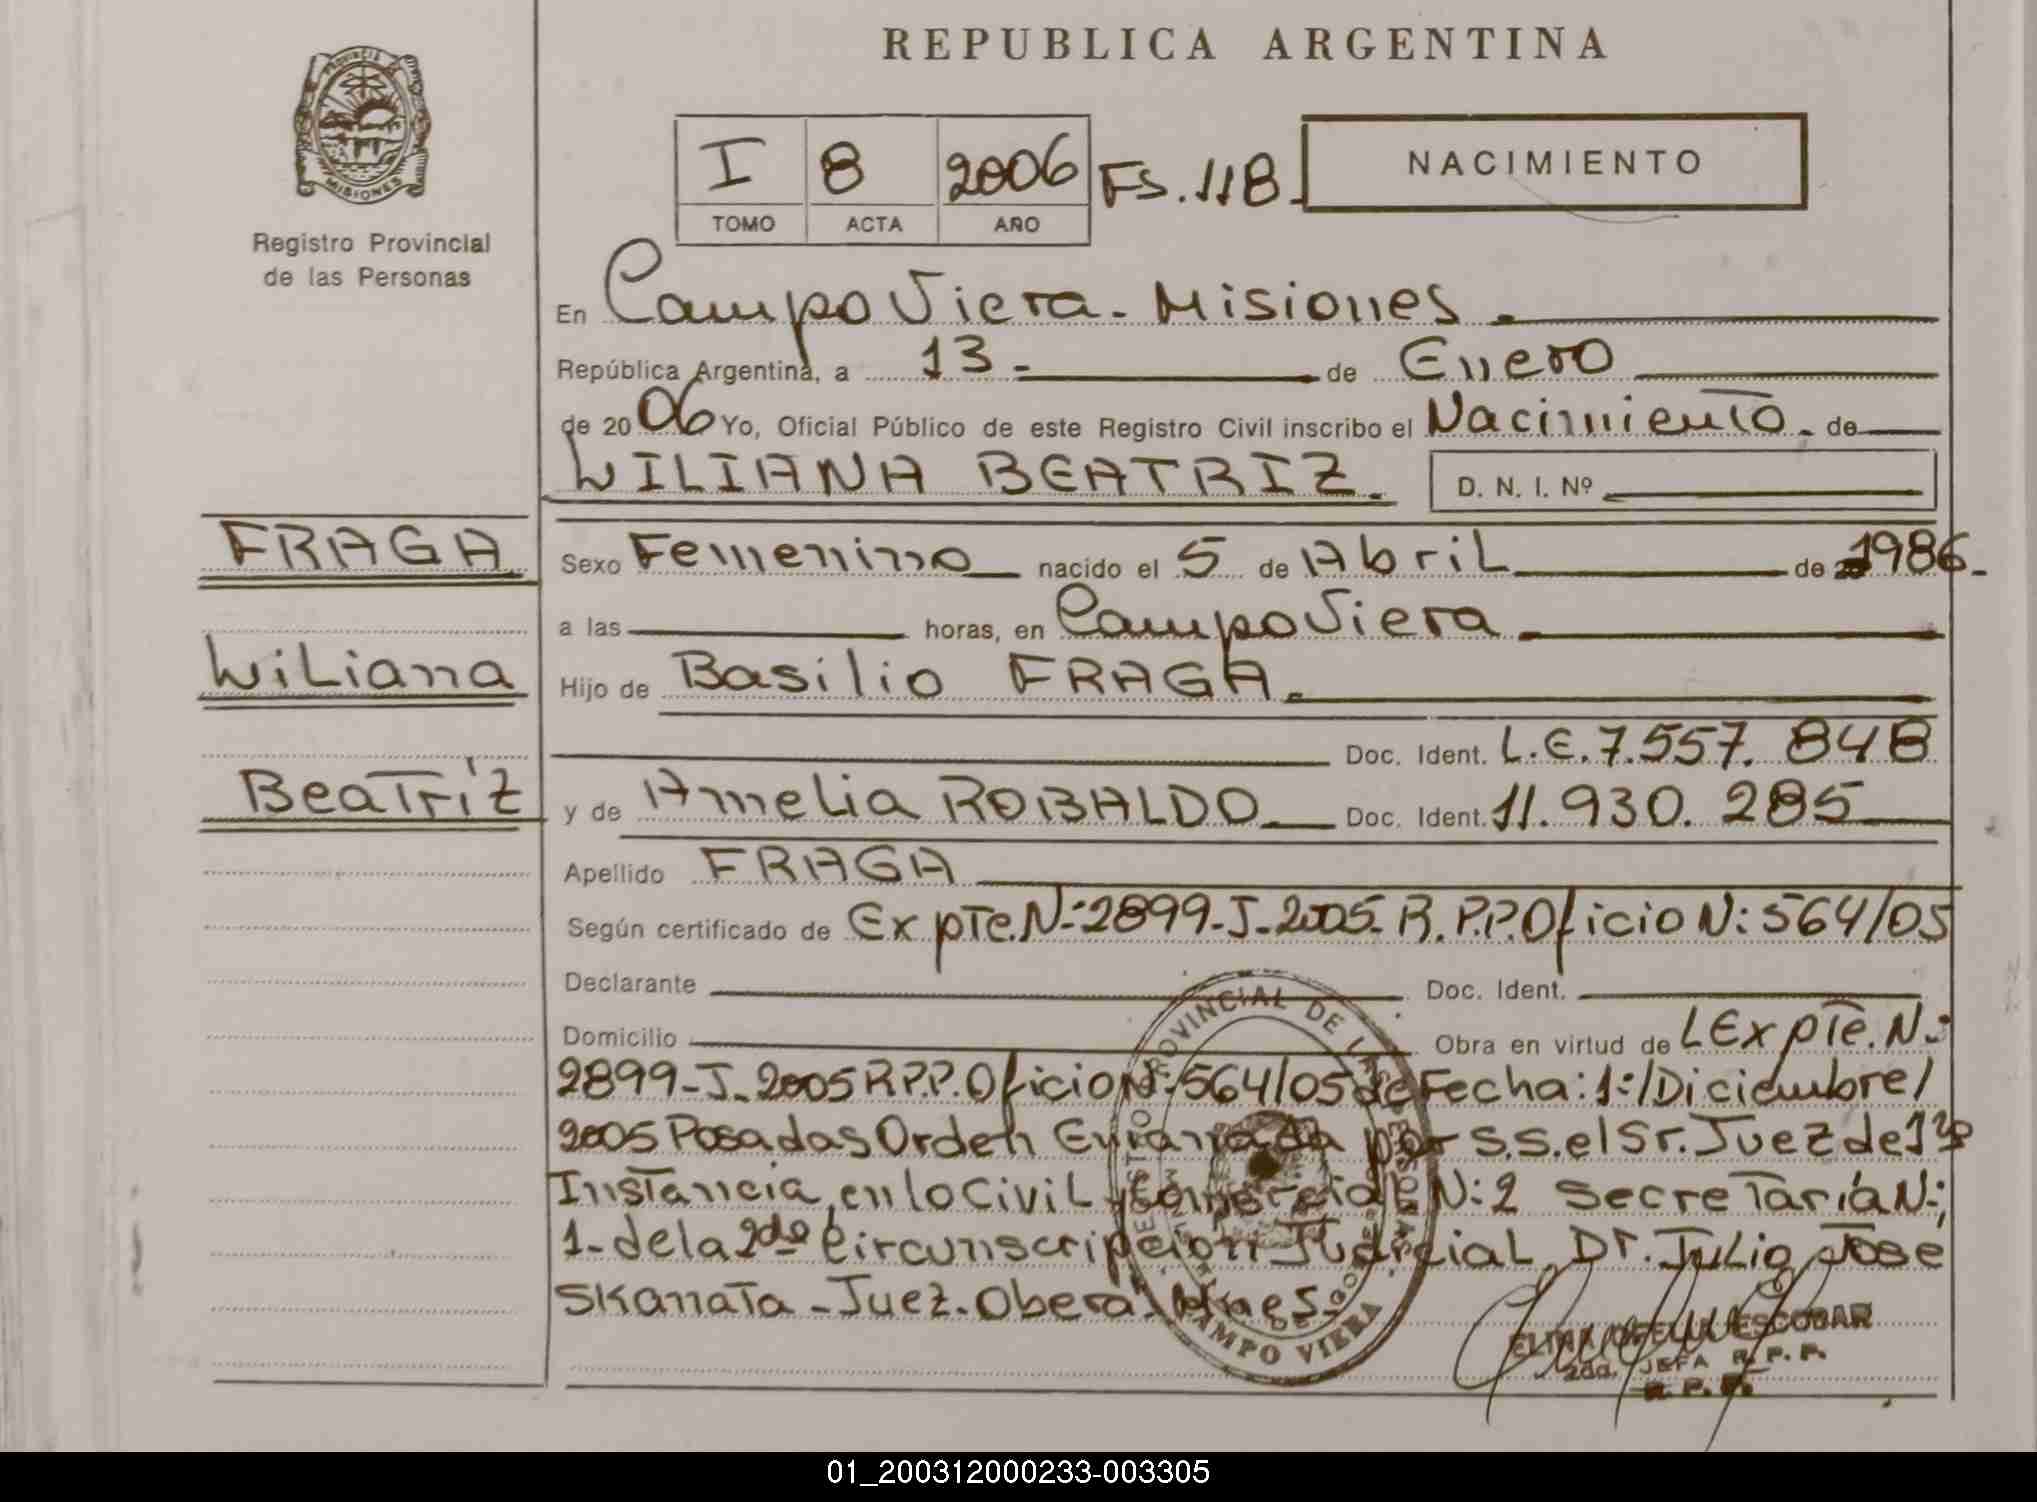 REPUBLICA ARGENTINA
PROVINCIA
MISIONES
Registro Provincial
de las Personas
I 8 2006 FS.118.
TOMO ACTA AÑO
NACIMIENTO
En Campo Viera - Misiones.
República Argentina, a 13 - de Enero
de 2006 Yo, Oficial Público de este Registro Civil inscribo el Nacimiento. de
WILIANA BEATRIZ. D. N. I. Nº
FRAGA
Sexo Femenino nacido el 5 de Abril de 1986.-
a las horas, en Campo Viera
Wiliana
Hijo de Basilio FRAGA.
Doc. Ident. L.E.7.557.848
Beatríz
y de Amelia ROBALDO Doc. Ident. 11.930.285
Apellido FRAGA
Según certificado de Expte.N:2899-J-2005-R.P.P.Oficio N:564/05
Declarante Doc. Ident.
Domicilio Obra en virtud de LExpte.N.:
2899-J-2005 R.P.P.Oficio N:564/05 de Fecha:1:/Diciembre/
2005 Posadas Orden Emanada por S.S.el Sr.Juez de 1ra
Instancia, en lo Civil y Comercial N:2 Secretaría N:
1-de la 2da Circunscripción Judicial, Dr. Julio Jose
Skanata - Juez. Obera
REGISTRO PROVINCIAL DE LAS PERSONAS
CAMPO VIERA
ESCOBAR
2da. JEFA R.P.P.
R.P.P.
01_200312000233-003305